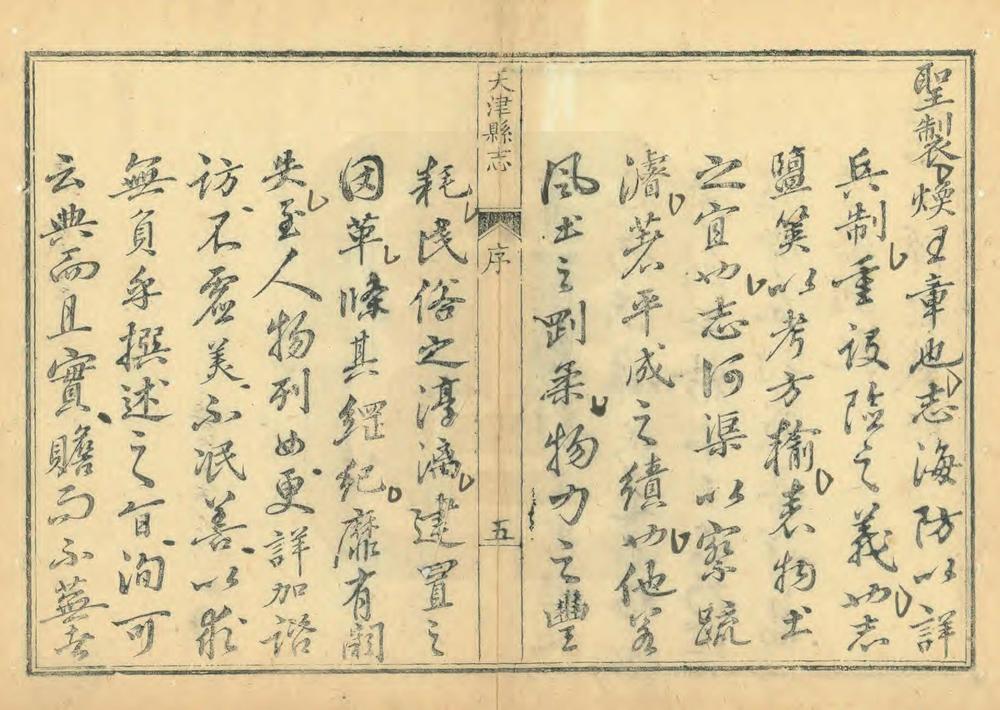 聖製煥王章也志海防以詳
兵制重設險之義也志
鹽筴以考方輸表物土
之宜也志河渠以察疏
濬著平成之績也他若
風土之剛柔物力之豐
天津縣志
序
五
耗民俗之淳漓建置之
因革條其綱紀靡有闕
失至人物列女更詳加諮
訪不虛美不泯善以求
無負乎撰述之旨洵可
云典而且實贍而不蕪者